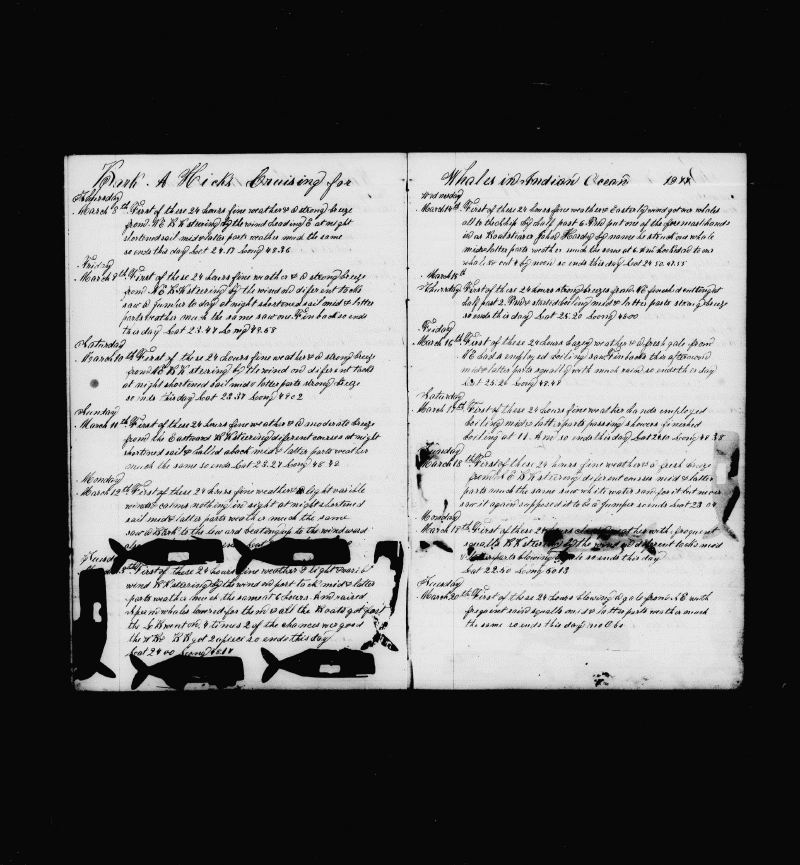 Bark A Hicks Cruising for
Thursday
March 8th First of these 24 hours fine weather & a strong breeze
from N E K K steering by the wind heading E at night
shortened sail mid & latter parts weather much the same
so ends this day Lat 24.17 Long 48.36
Friday
March 9th First of these 24 hours fine weather & a strong breeze
from N E K K steering by the wind on different tacks
saw a Jumper to day at night shortened sail mid & latter
parts weather much the same saw one Finback so ends
this day Lat 23.47 Long 49.58
Saturday
March 10th First of these 24 hours fine weather & a strong breeze
from K K steering by the wind on different tacks
at night shortened sail mid & latter parts strong breeze
so ends this day Lat 23.37 Long 49.02
Sunday
March 11th First of these 24 hours fine weather & a moderate breeze
from the Eastward K K steering different courses at night
shortened sail & hauled aback mid & latter parts weather
much the same so ends Lat 23.27 Long 48.42
Monday
March 12th First of these 24 hours fine weather & light variable
winds coming nothing in sight at night shortened
sail mid & latter parts weather much the same
saw a Bark to the leward beating up to the windward
Tuesday
First of these 24 hours fine weather & light
wind K K steering by the wind on port tack mid & latter
parts weather much the same at 6 hours And raised
Sperm whales lowered for them & all the Boats got fast
the L B went on 4 times 2 of the chances was good
the W B K K got 2 apiece so ends this day
Lat 24.00 Long 48.17
Whales in Indian Ocean 18
Wednesday
March 14th First of these 24 hours fine weather & Easterly wind got our whales
all to the ship by half past 6 P M put one of the foremast hands
in as Boatsteerer John Hardy by name he struck one whale
mid & latter parts weather much the same at 6 A M hooked on to one
whale so cut 4 by noon so ends this day Lat 24.50 47.55
March 15th
Thursday First of these 24 hours strong breeze from N E finished cutting at
half past 2 P M & started boiling mid & latter parts strong breeze
so ends this day Lat 25.20 Long 48.00
Friday
March 16th First of these 24 hours hazy weather & a fresh gale from
N E hands employed boiling saw Finbacks this afternoon
mid & latter parts squally with much rain so ends this day
Lat 25.26 Long 48.48
Saturday
March 17th First of these 24 hours fine weather hands employed
boiling mid & latter parts passing showers finished
boiling at 11 A M so ends this day Lat 24.10 Long 48.38
Sunday
March 18th First of these 24 hours fine weather & a fresh breeze
from N E K K steering different courses mid & latter
parts much the same saw white water saw for it but never
saw it again supposed it to be a Jumper so ends Lat 23.04
Monday
March 19th First of these 24 hours weather with frequent
squalls K K steering by the wind on different tacks mid
& latter parts blowing gale so ends this day
Lat 22.40 Long 50.13
Tuesday
March 20th First of these 24 hours blowing a gale from N E with
frequent rain squalls mid & latter parts weather much
the same so ends this day no Obs